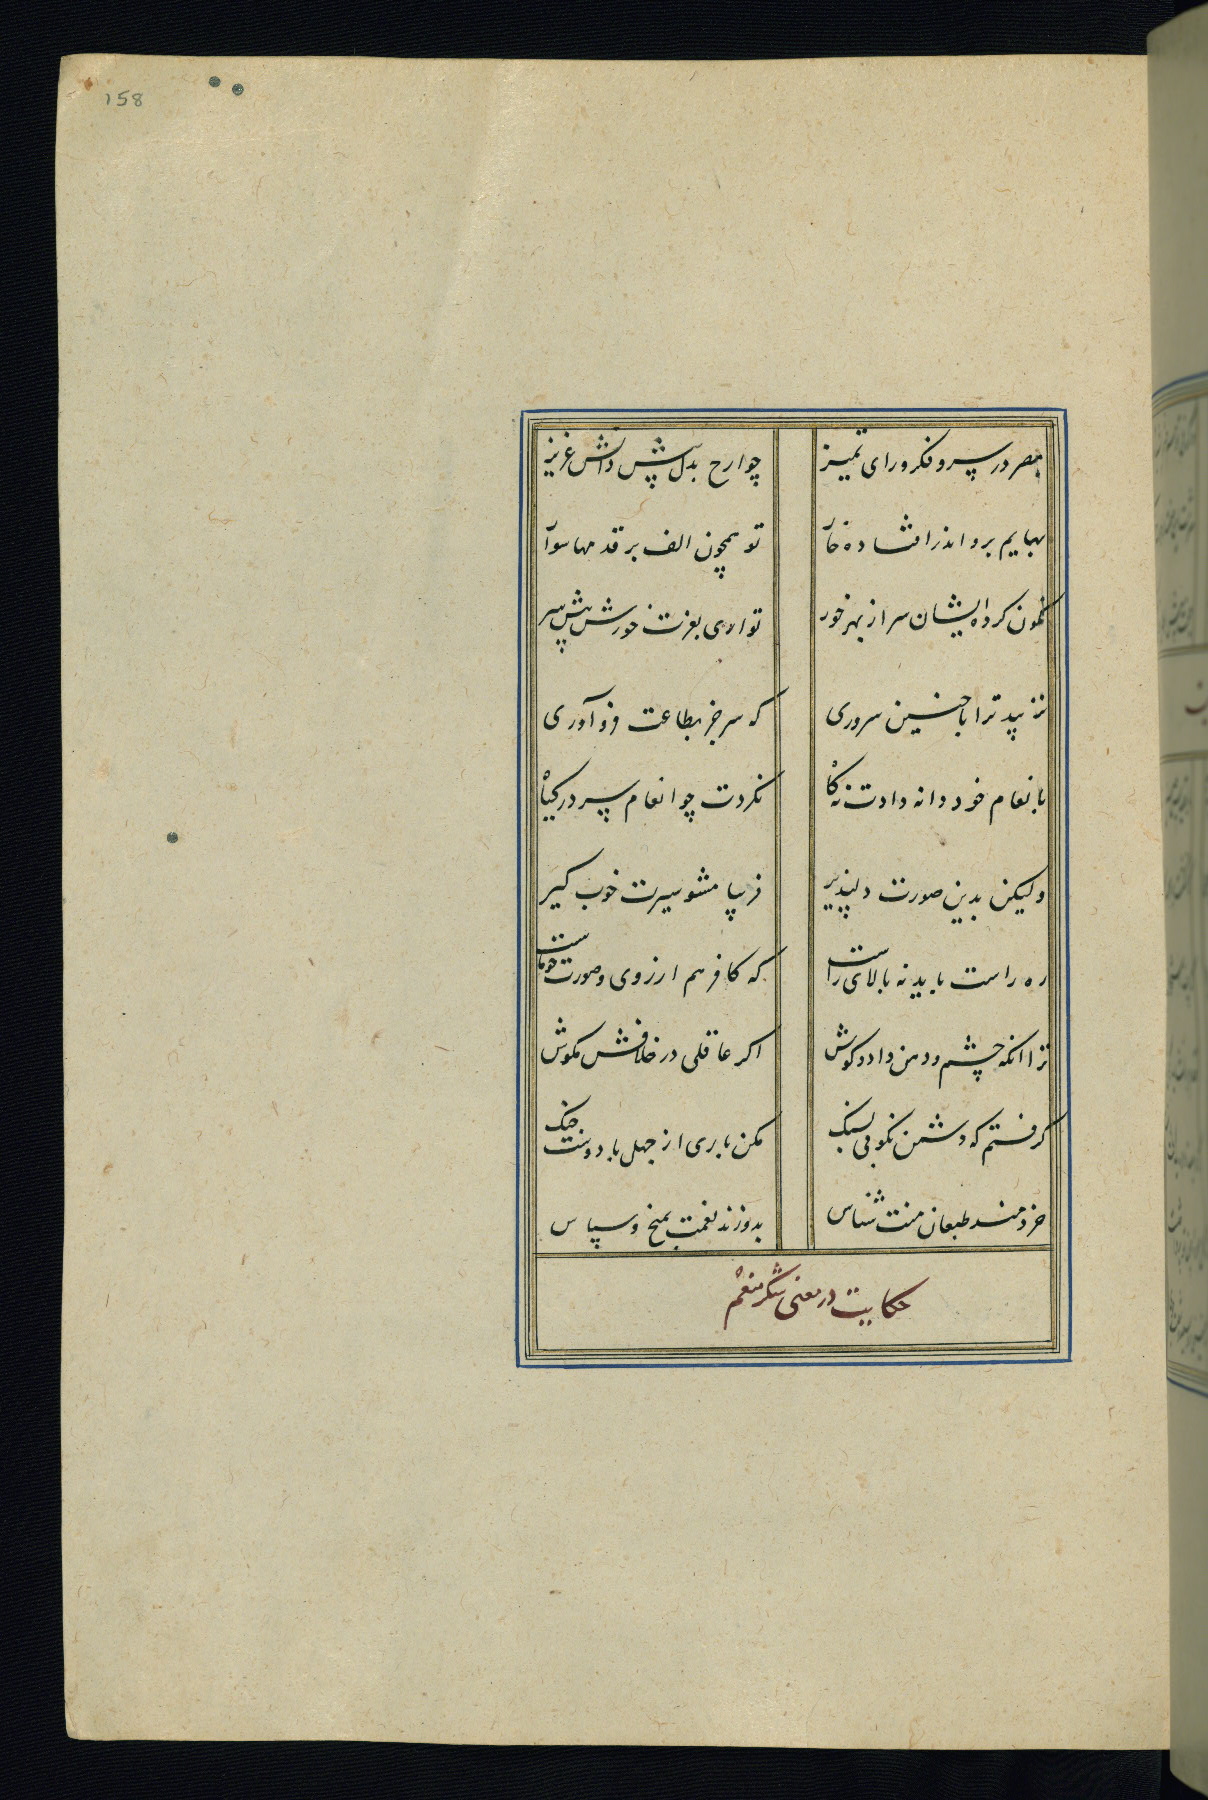 158
بصر در سر و فکر و رای تمیز
جوارح بدل پیش دانش عزیز
بهایم برو اندر افتاده خوار
تو همچون الف بر قدمها سوار
نگون کرده ایشان سر از بهر خور
تو آری بعزت خورش پیش سر
نزیبد ترا با چنین سروری
که سر جز بطاعت فرو آوری
بانعام خود دانه دادت نه کاه
نکردت چو انعام سر در گیاه
ولیکن بدین صورت دلپذیر
فریبا مشو سیرت خوب گیر
ره راست باید نه بالای راست
که کافر هم از روی و صورت چو ماست
ترا انکه چشم و دهن داد و گوش
اگر عاقلی در خلافش مکوش
گرفتم که دشمن بکوبی بسنگ
مکن باری از جهل با دوست جنگ
خردمند طبعان منت شناس
بدوزند نعمت بمیخ و سپاس
حکایت در معنی شکر منعم